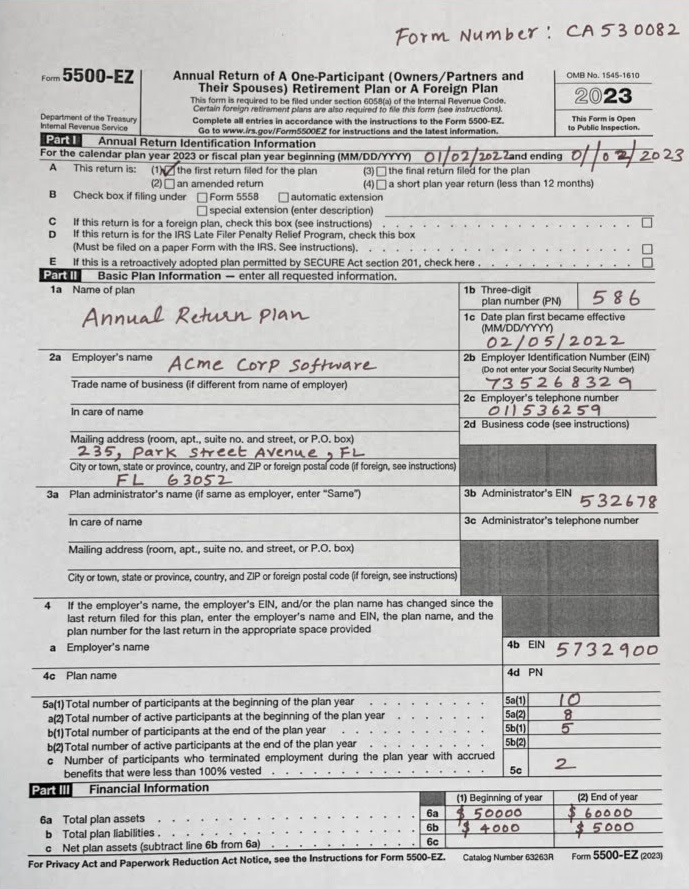 Form Number: CA530082
Form 5500-EZ
Department of the Treasury
Internal Revenue Service
Annual Return of A One-Participant (Owners/Partners and
Their Spouses) Retirement Plan or A Foreign Plan
This form is required to be filed under section 6058(a) of the Internal Revenue Code.
Certain foreign retirement plans are also required to file this form (see instructions).
Complete all entries in accordance with the instructions to the Form 5500-EZ.
Go to www.irs.gov/Form5500EZ for instructions and the latest information.
OMB No. 1545-1610
2023
This Form is Open
to Public Inspection.
Part I Annual Return Identification Information
For the calendar plan year 2023 or fiscal plan year beginning (MM/DD/YYYY) 01/02/2022 and ending 01/02/2023
A This return is: (1) the first return filed for the plan (3) the final return filed for the plan
(2) an amended return (4) a short plan year return (less than 12 months)
B Check box if filing under Form 5558 automatic extension
special extension (enter description)
C If this return is for a foreign plan, check this box (see instructions)
D If this return is for the IRS Late Filer Penalty Relief Program, check this box
(Must be filed on a paper Form with the IRS. See instructions).
E If this is a retroactively adopted plan permitted by SECURE Act section 201, check here
Part II Basic Plan Information — enter all requested information.
1a Name of plan
Annual Return Plan
1b Three-digit
plan number (PN) 586
1c Date plan first became effective
(MM/DD/YYYY)
02/05/2022
2a Employer's name Acme Corp Software
Trade name of business (if different from name of employer)
In care of name
Mailing address (room, apt., suite no. and street, or P.O. box)
235, Park Street Avenue, FL
City or town, state or province, country, and ZIP or foreign postal code (if foreign, see instructions)
FL 63052
2b Employer Identification Number (EIN)
(Do not enter your Social Security Number)
735268329
2c Employer's telephone number
011536259
2d Business code (see instructions)
3a Plan administrator's name (if same as employer, enter "Same")
In care of name
Mailing address (room, apt., suite no. and street, or P.O. box)
City or town, state or province, country, and ZIP or foreign postal code (if foreign, see instructions)
3b Administrator's EIN 532678
3c Administrator's telephone number
4 If the employer's name, the employer's EIN, and/or the plan name has changed since the
last return filed for this plan, enter the employer's name and EIN, the plan name, and the
plan number for the last return in the appropriate space provided
a Employer's name
4b EIN 5732900
4c Plan name
4d PN
5a(1) Total number of participants at the beginning of the plan year 5a(1) 10
a(2) Total number of active participants at the beginning of the plan year 5a(2) 8
b(1) Total number of participants at the end of the plan year 5b(1) 5
b(2) Total number of active participants at the end of the plan year 5b(2)
c Number of participants who terminated employment during the plan year with accrued
benefits that were less than 100% vested 5c 2
Part III Financial Information
(1) Beginning of year (2) End of year
6a Total plan assets 6a $ 50000 $ 60000
b Total plan liabilities 6b $ 4000 $ 5000
c Net plan assets (subtract line 6b from 6a) 6c
For Privacy Act and Paperwork Reduction Act Notice, see the Instructions for Form 5500-EZ. Catalog Number 63263R Form 5500-EZ (2023)